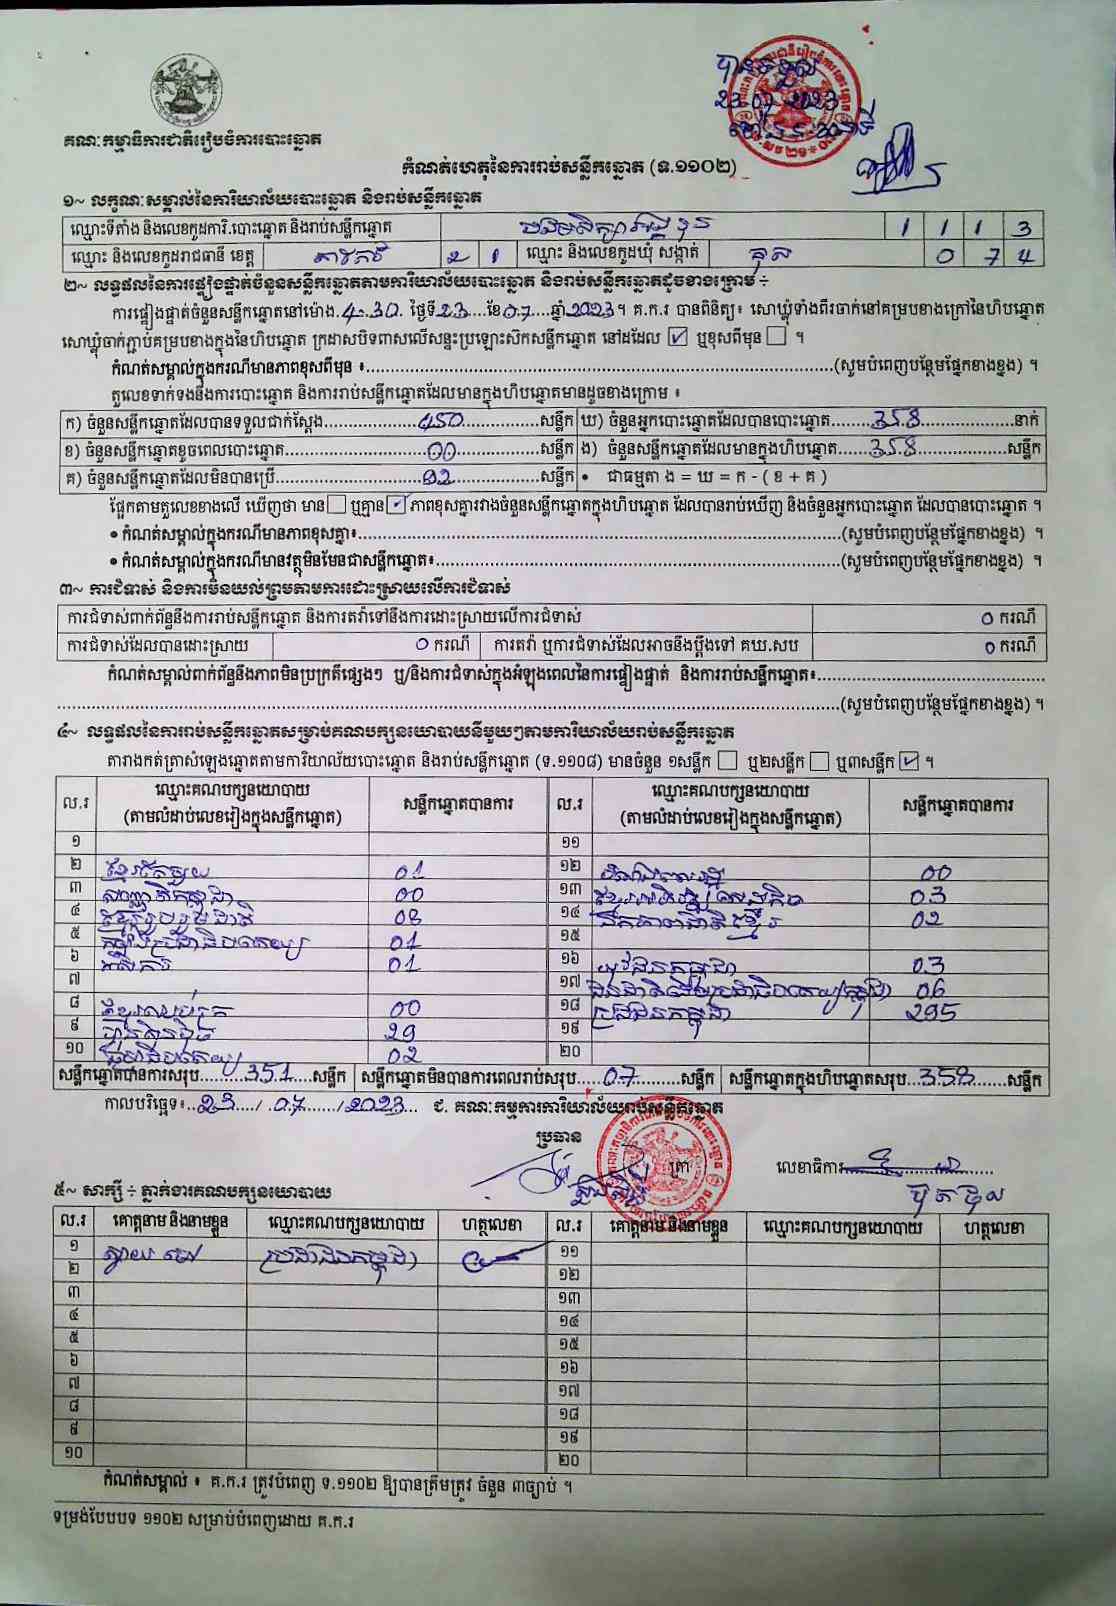 គណៈកម្មាធិការជាតិរៀបចំការបោះឆ្នោត
បានទទួល
23 07 2023
កំណត់ហេតុនៃការរាប់សន្លឹកឆ្នោត (ទ.១១០២)
១~ លក្ខណៈសម្គាល់នៃការិយាល័យបោះឆ្នោត និងរាប់សន្លឹកឆ្នោត
ឈ្មោះទីតាំង និងលេខកូដការិ.បោះឆ្នោត និងរាប់សន្លឹកឆ្នោត 1 1 1 3
ឈ្មោះ និងលេខកូដរាជធានី ខេត្ត តាកែវ 2 1 ឈ្មោះ និងលេខកូដឃុំ សង្កាត់ គុស 0 7 4
២~ លទ្ធផលនៃការផ្ទៀងផ្ទាត់ចំនួនសន្លឹកឆ្នោតតាមការិយាល័យបោះឆ្នោត និងរាប់សន្លឹកឆ្នោតដូចខាងក្រោម ÷
ការផ្ទៀងផ្ទាត់ចំនួនសន្លឹកឆ្នោតនៅម៉ោង 4:30 ថ្ងៃទី 23 ខែ 07 ឆ្នាំ 2023 ។ គ.ក.រ បានពិនិត្យ៖ សោឃ្លុំទាំងពីរចាក់នៅគម្របខាងក្រៅនៃហិបឆ្នោត
សោឃ្លុំចាក់ភ្ជាប់គម្របខាងក្នុងនៃហិបឆ្នោត ក្រដាសបិទពាសលើសន្ទះប្រឡោះស៊កសន្លឹកឆ្នោត នៅដដែល ☑ ឬខុសពីមុន ☐ ។
កំណត់សម្គាល់ក្នុងករណីមានភាពខុសពីមុន ៖ (សូមបំពេញបន្ថែមផ្នែកខាងខ្នង) ។
តួលេខទាក់ទងនឹងការបោះឆ្នោត និងការរាប់សន្លឹកឆ្នោតដែលមានក្នុងហិបឆ្នោតមានដូចខាងក្រោម ៖
ក) ចំនួនសន្លឹកឆ្នោតដែលបានទទួលជាក់ស្តែង 450 សន្លឹក ឃ) ចំនួនអ្នកបោះឆ្នោតដែលបានបោះឆ្នោត 358 នាក់
ខ) ចំនួនសន្លឹកឆ្នោតខូចពេលបោះឆ្នោត 00 សន្លឹក ង) ចំនួនសន្លឹកឆ្នោតដែលមានក្នុងហិបឆ្នោត 358 សន្លឹក
គ) ចំនួនសន្លឹកឆ្នោតដែលមិនបានប្រើ 92 សន្លឹក • ជាធម្មតា ង = ឃ = ក - ( ខ + គ )
ផ្អែកតាមតួលេខខាងលើ ឃើញថា មាន ☐ ឬគ្មាន ☑ ភាពខុសគ្នារវាងចំនួនសន្លឹកឆ្នោតក្នុងហិបឆ្នោត ដែលបានរាប់ឃើញ និងចំនួនអ្នកបោះឆ្នោត ដែលបានបោះឆ្នោត ។
• កំណត់សម្គាល់ក្នុងករណីមានភាពខុសគ្នា៖ (សូមបំពេញបន្ថែមផ្នែកខាងខ្នង) ។
• កំណត់សម្គាល់ក្នុងករណីមានវត្ថុមិនមែនជាសន្លឹកឆ្នោត៖ (សូមបំពេញបន្ថែមផ្នែកខាងខ្នង) ។
៣~ ការជំទាស់ និងការមិនយល់ព្រមតាមការដោះស្រាយលើការជំទាស់
ការជំទាស់ពាក់ព័ន្ធនឹងការរាប់សន្លឹកឆ្នោត និងការតវ៉ាទៅនឹងការដោះស្រាយលើការជំទាស់ 0 ករណី
ការជំទាស់ដែលបានដោះស្រាយ 0 ករណី ការតវ៉ា ឬការជំទាស់ដែលអាចនឹងប្តឹងទៅ គឃ.សប 0 ករណី
កំណត់សម្គាល់ពាក់ព័ន្ធនឹងភាពមិនប្រក្រតីផ្សេងៗ ឬ/និងការជំទាស់ក្នុងអំឡុងពេលនៃការផ្ទៀងផ្ទាត់ និងការរាប់សន្លឹកឆ្នោត៖
(សូមបំពេញបន្ថែមផ្នែកខាងខ្នង) ។
៤~ លទ្ធផលនៃការរាប់សន្លឹកឆ្នោតសម្រាប់គណបក្សនយោបាយនីមួយៗតាមការិយាល័យរាប់សន្លឹកឆ្នោត
តារាងកត់ត្រាសំឡេងឆ្នោតតាមការិយាល័យបោះឆ្នោត និងរាប់សន្លឹកឆ្នោត (ទ.១១០៨) មានចំនួន ១សន្លឹក ☐ ឬ២សន្លឹក ☐ ឬ៣សន្លឹក ☑ ។
ល.រ ឈ្មោះគណបក្សនយោបាយ (តាមលំដាប់លេខរៀងក្នុងសន្លឹកឆ្នោត) សន្លឹកឆ្នោតបានការ ល.រ ឈ្មោះគណបក្សនយោបាយ (តាមលំដាប់លេខរៀងក្នុងសន្លឹកឆ្នោត) សន្លឹកឆ្នោតបានការ
១ ១១
២ ខ្មែរតែមួយ 01 ១២ 00
៣ សញ្ជាតិកម្ពុជា 00 ១៣ ខ្មែរអភិវឌ្ឍន៍សេដ្ឋកិច្ច 03
៤ ខ្មែររួបរួមជាតិ 08 ១៤ ឯកភាពជាតិខ្មែរ 02
៥ កម្លាំងប្រជាធិបតេយ្យ 01 ១៥
៦ កសិករ 01 ១៦ យុវជនកម្ពុជា 03
៧ ១៧ ជនជាតិដើមប្រជាធិបតេយ្យកម្ពុជា 06
៨ ខ្មែរឈប់ក្រ 00 ១៨ ប្រជាជនកម្ពុជា 295
៩ ហ៊្វុនស៊ិនប៉ិច 29 ១៩
១០ ធម្មាធិបតេយ្យ 02 ២០
សន្លឹកឆ្នោតបានការសរុប 351 សន្លឹក សន្លឹកឆ្នោតមិនបានការពេលរាប់សរុប 07 សន្លឹក សន្លឹកឆ្នោតក្នុងហិបឆ្នោតសរុប 358 សន្លឹក
កាលបរិច្ឆេទ៖ 23 / 07 / 2023 ជ. គណៈកម្មការការិយាល័យរាប់សន្លឹកឆ្នោត
ប្រធាន ត្រា លេខាធិការ
៥~ សាក្សី ÷ ភ្នាក់ងារគណបក្សនយោបាយ
ល.រ គោត្តនាម និងនាមខ្លួន ឈ្មោះគណបក្សនយោបាយ ហត្ថលេខា ល.រ គោត្តនាម និងនាមខ្លួន ឈ្មោះគណបក្សនយោបាយ ហត្ថលេខា
១ ស្វាយ ប្រជាជនកម្ពុជា ១១
២ ១២
៣ ១៣
៤ ១៤
៥ ១៥
៦ ១៦
៧ ១៧
៨ ១៨
៩ ១៩
១០ ២០
កំណត់សម្គាល់ ៖ គ.ក.រ ត្រូវបំពេញ ទ.១១០២ ឱ្យបានត្រឹមត្រូវ ចំនួន ៣ច្បាប់ ។
ទម្រង់បែបបទ ១១០២ សម្រាប់បំពេញដោយ គ.ក.រ